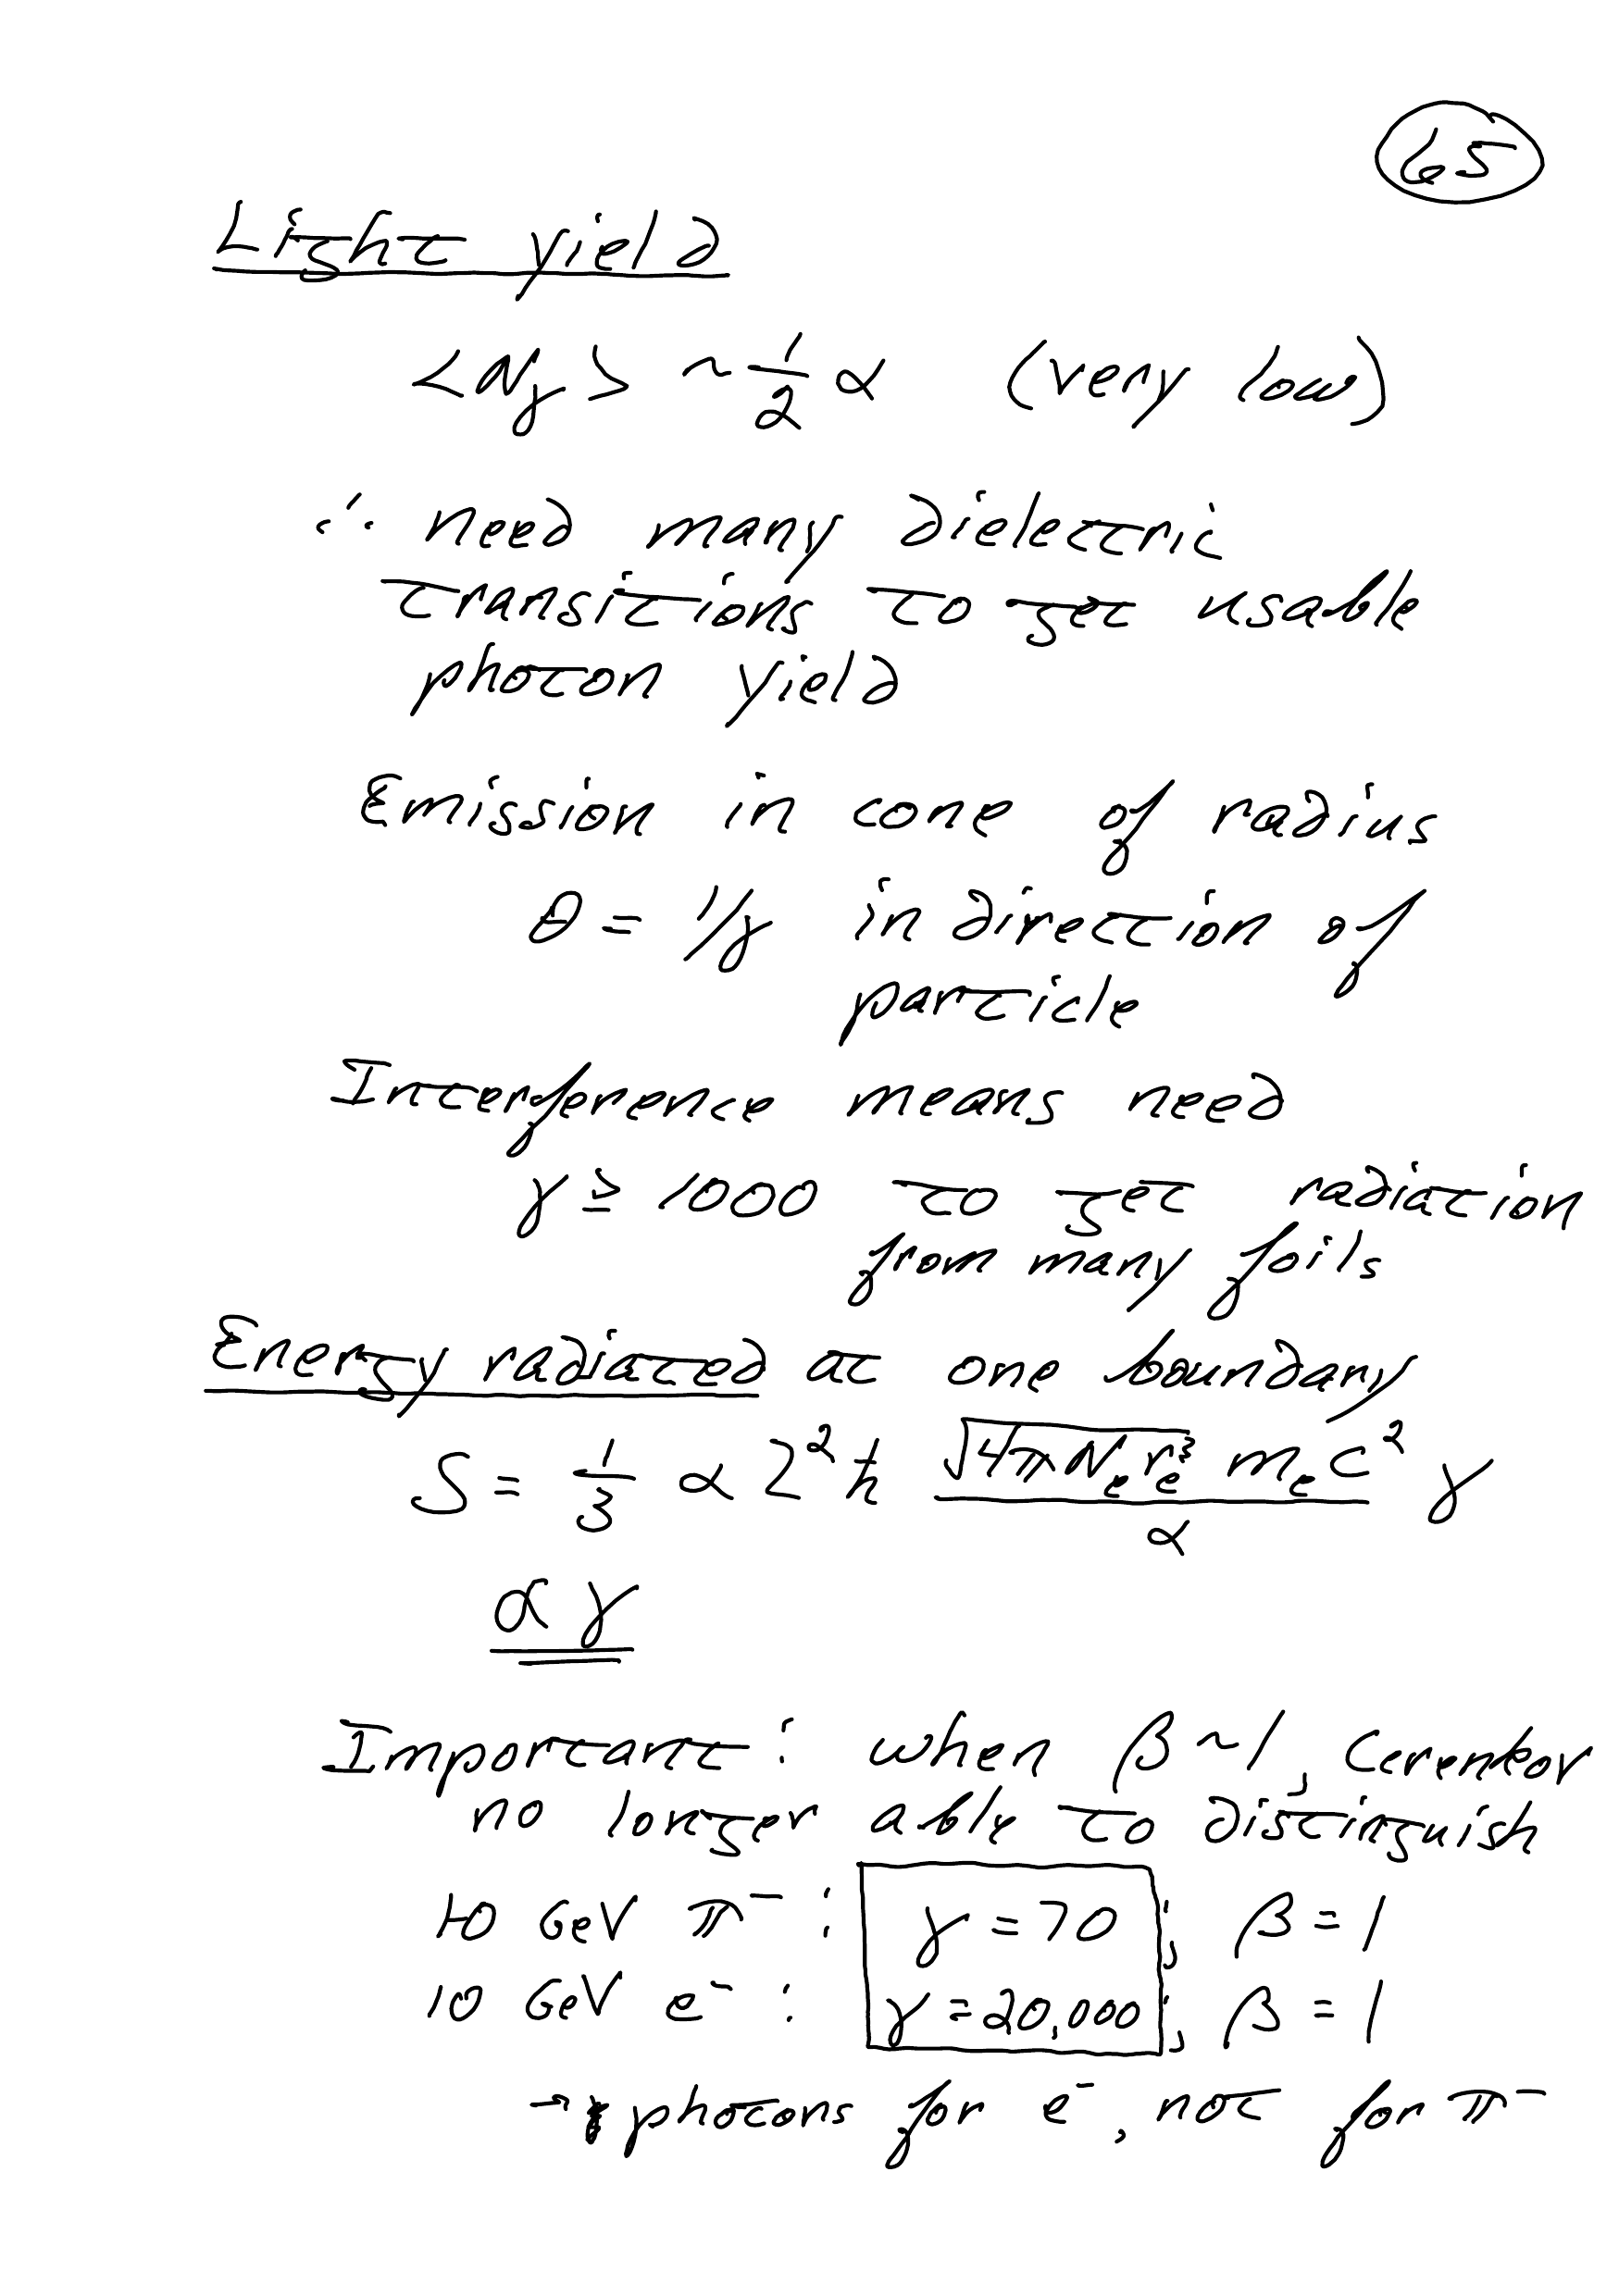 65
Light yield
<N_γ> ~ 1/2 α (very low)
∴ need many dielectric
transitions to get usable
photon yield
Emission in cone of radius
θ = 1/γ in direction of
particle
Interference means need
γ ≥ 1000 to get radiation
from many foils
Energy radiated at one boundary
S = 1/3 α Z² ħ √(4π N_e r_e³) m_e c² / α γ
α γ
Important: when β ~ 1, Cerenkov
no longer able to distinguish
10 GeV π⁻ : γ = 70 ; β = 1
10 GeV e⁻ : γ = 20,000 ; β = 1
→ photons for e⁻, not for π⁻